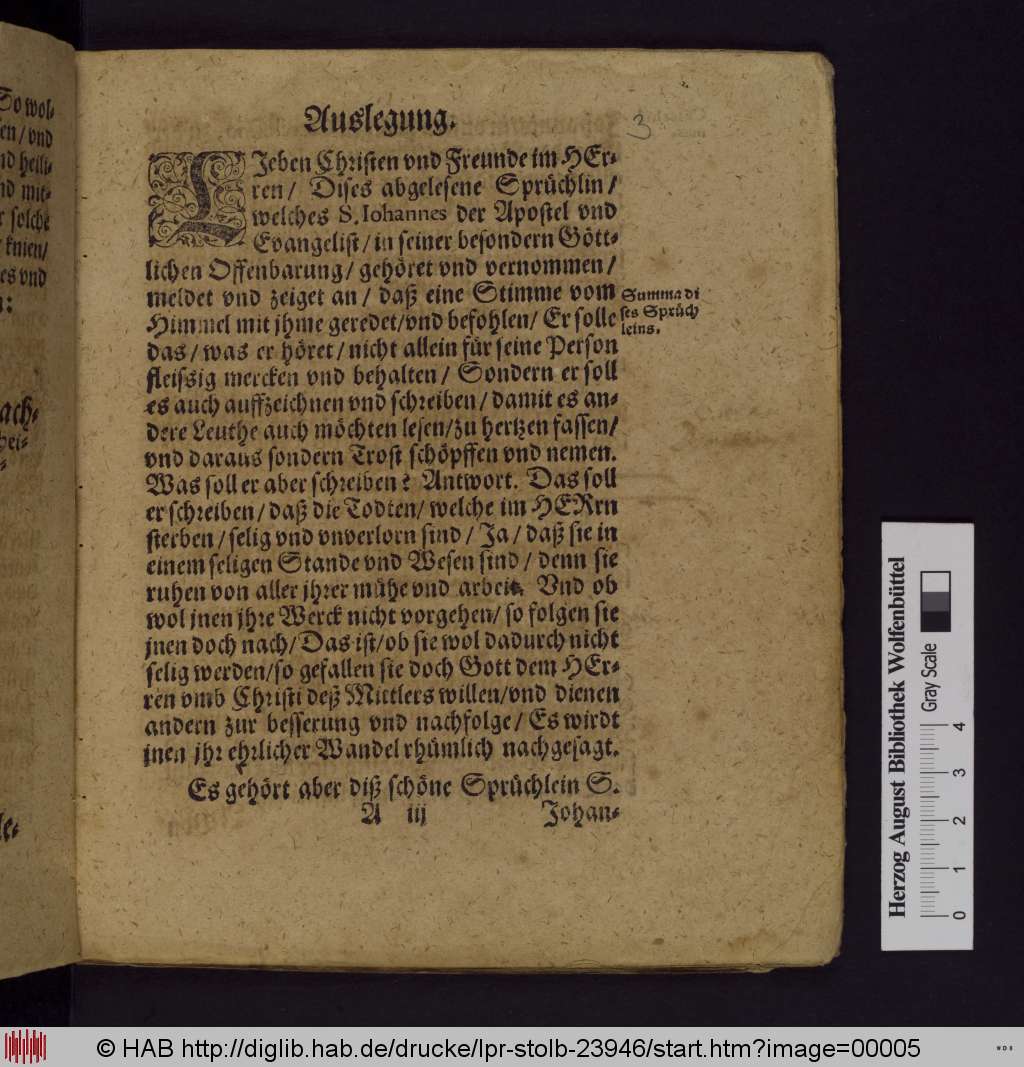 So wol-
en/ vnd
nd heili-
nd mit-
r solche
knien/
es vnd
n:
ach-
hei-
le-
Auslegung.
3
LJeben Christen vnd Freunde im HEr-
ren/ Dises abgelesene Sprüchlin/
welches S. Iohannes der Apostel vnd
Evangelist/ in seiner besondern Gött-
lichen Offenbarung/ gehöret vnd vernommen/
meldet vnd zeiget an/ daß eine Stimme vom
Himmel mit jhme geredet/ vnd befohlen/ Er solle
das/ was er höret/ nicht allein für seine Person
fleissig mercken vnd behalten/ Sondern er soll
es auch auffzeichnen vnd schreiben/ damit es an-
dere Leuthe auch möchten lesen/ zu hertzen fassen/
vnd daraus sondern Trost schöpffen vnd nemen.
Was soll er aber schreiben? Antwort. Das soll
er schreiben/ daß die Todten/ welche im HERrn
sterben/ selig vnd vnverlorn sind/ Ja/ daß sie in
einem seligen Stande vnd Wesen sind/ denn sie
ruhen von aller jhrer mühe vnd arbeit. Vnd ob
wol jnen jhre Werck nicht vorgehen/ so folgen sie
jnen doch nach/ Das ist/ ob sie wol dadurch nicht
selig werden/ so gefallen sie doch Gott dem HEr-
ren vmb Christi deß Mittlers willen/ vnd dienen
andern zur besserung vnd nachfolge/ Es wirdt
jnen jhr ehrlicher Wandel rhümlich nachgesagt.
Es gehört aber diß schöne Sprüchlein S.
A iij Johan-
Summa di
ses Sprüch
leins.
Herzog August Bibliothek Wolfenbüttel
Gray Scale
0 1 2 3 4
© HAB http://diglib.hab.de/drucke/lpr-stolb-23946/start.htm?image=00005